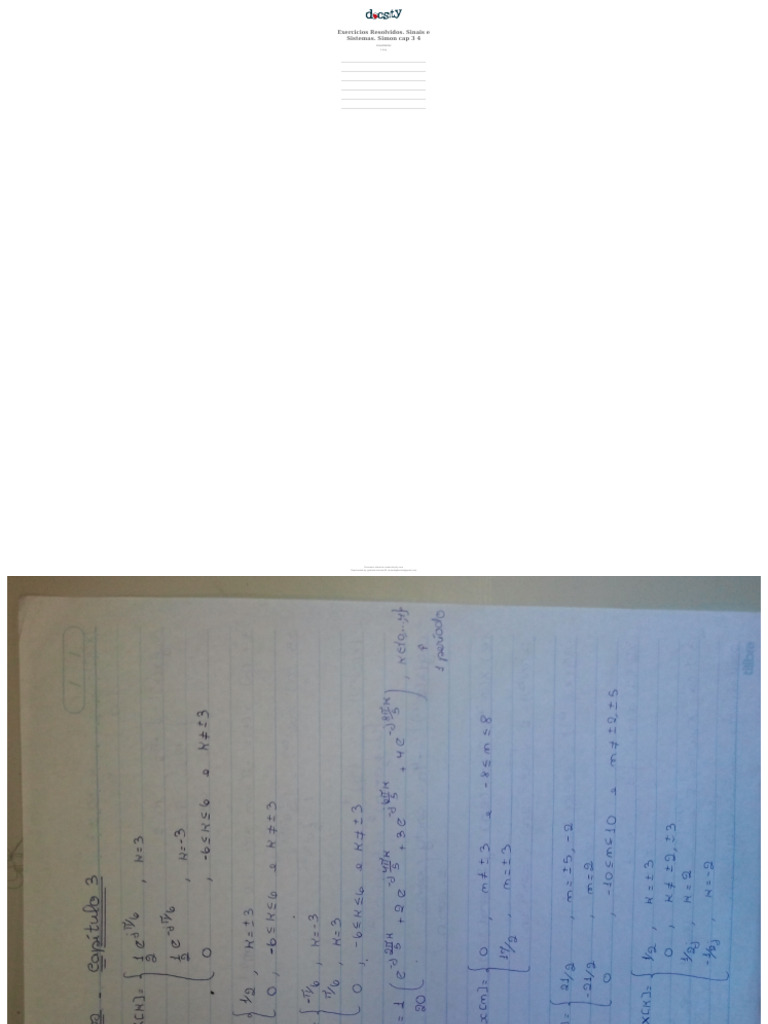 docsity
Exercícios Resolvidos. Sinais e
Sistemas. Simon cap 3 4
- Capítulo 3
X[k] = { 1/2 e^{jπ/6} , k=3
1/2 e^{-jπ/6} , k=-3
0 , -6≤k≤6 e k≠±3
{ 1/2 , k=±3
0 , -6≤k≤6 e k≠±3
{ -π/6 , k=-3
π/6 , k=3
0 , -6≤k≤6 e k≠±3
= 1/20 ( e^{-j2πk/5} + 2e^{-j4πk/5} + 3e^{-j6πk/5} + 4e^{-j8πk/5} ) , k∈{0...4}
1 período
x[n] = { 0 , n≠±3 e -8≤n≤8
17/2 , n=±3
= { 21/2 , n=±5, -2
-21/2 , n=2
0 , -10≤n≤10 e n≠±2,±5
X[k] = { 1/2 , k=±3
0 , k≠±2,±3
1/2j , k=2
-1/2j , k=-2